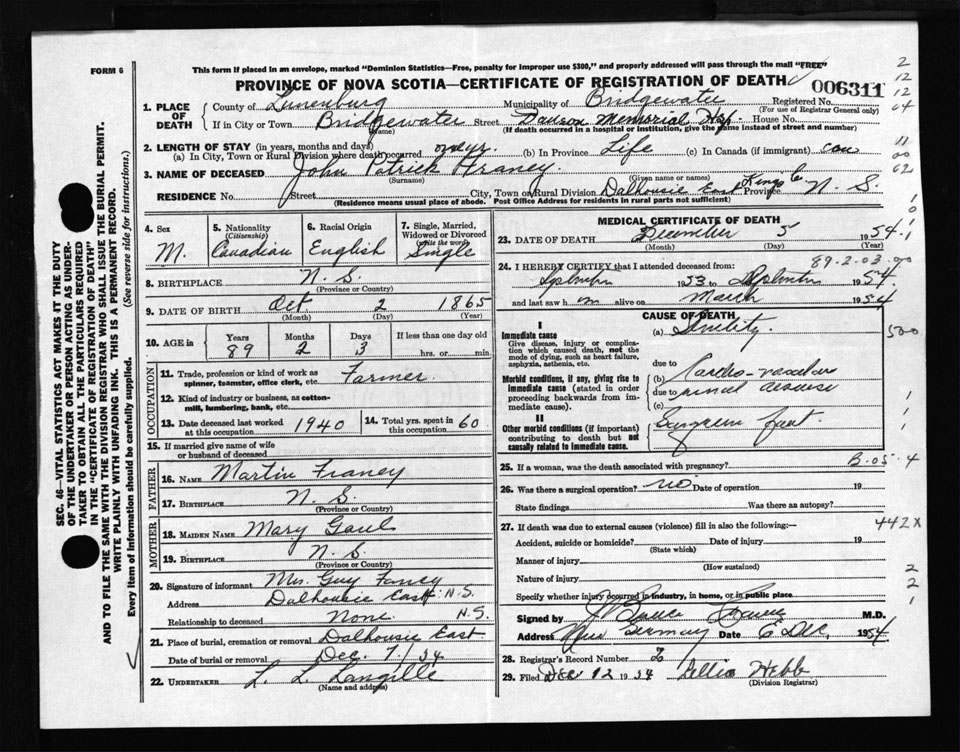 FORM 6
This form if placed in an envelope, marked "Dominion Statistics—Free, penalty for improper use $300," and properly addressed will pass through the mail "FREE"
PROVINCE OF NOVA SCOTIA—CERTIFICATE OF REGISTRATION OF DEATH
006311
1. PLACE OF DEATH
County of Lunenburg Municipality of Bridgewater Registered No.
(For use of Registrar General only)
If in City or Town Bridgewater Street Dawson Memorial Hsp. House No.
(Name) (If death occurred in a hospital or institution, give the name instead of street and number)
2. LENGTH OF STAY (in years, months and days)
(a) In City, Town or Rural Division where death occurred one yr. (b) In Province Life (c) In Canada (if immigrant) can
3. NAME OF DECEASED John Patrick Franey
(Surname) (Given name or names)
RESIDENCE No. Street City, Town or Rural Division Dalhousie East Kings Co. Province N. S.
(Residence means usual place of abode. Post Office Address for residents in rural parts not sufficient)
4. Sex
M.
5. Nationality (Citizenship)
Canadian
6. Racial Origin
English
7. Single, Married, Widowed or Divorced (Write the word)
Single
8. BIRTHPLACE N. S.
(Province or Country)
9. DATE OF BIRTH Oct 2 1865
(Month) (Day) (Year)
10. AGE in Years Months Days If less than one day old
89 2 3 hrs. or min.
OCCUPATION
11. Trade, profession or kind of work as spinner, teamster, office clerk, etc. Farmer.
12. Kind of industry or business, as cotton-mill, lumbering, bank, etc.
13. Date deceased last worked at this occupation 1940
14. Total yrs. spent in this occupation 60
15. If married give name of wife or husband of deceased
FATHER
16. NAME Martin Franey
17. BIRTHPLACE N. S.
(Province or Country)
MOTHER
18. MAIDEN NAME Mary Gaul
19. BIRTHPLACE N. S.
(Province or Country)
20. Signature of informant Mrs. Guy Fancy
Address Dalhousie East N.S.
Relationship to deceased None N.S.
21. Place of burial, cremation or removal Dalhousie East
Date of burial or removal Dec. 7/54
22. UNDERTAKER L. L. Langille
(Name and address)
MEDICAL CERTIFICATE OF DEATH
23. DATE OF DEATH December 5 1954
(Month) (Day) (Year)
89.2.03.00
24. I HEREBY CERTIFY that I attended deceased from:
September 1953 to September 1954
and last saw him alive on March 1954
CAUSE OF DEATH
I
Immediate cause
Give disease, injury or complication which caused death, not the mode of dying, such as heart failure, asphyxia, asthenia, etc.
(a) Senility.
500
due to
Morbid conditions, if any, giving rise to immediate cause (stated in order proceeding backwards from immediate cause).
(b) Cardio-vascular
due to renal disease
(c)
II
Other morbid conditions (if important) contributing to death but not causally related to immediate cause.
Gangrene foot
25. If a woman, was the death associated with pregnancy? B.05.4
26. Was there a surgical operation? no Date of operation 19
State findings Was there an autopsy?
27. If death was due to external causes (violence) fill in also the following:—
442X
Accident, suicide or homicide? Date of injury 19
(State which)
Manner of injury
(How sustained)
Nature of injury
Specify whether injury occurred in industry, in home, or in public place
Signed by M.D.
Address New Germany Date 6 Dec, 1954
28. Registrar's Record Number 2
29. Filed DEC 12 1954 Lillia Hebb
(Division Registrar)
SEC. 46—VITAL STATISTICS ACT MAKES IT THE DUTY OF THE UNDERTAKER OR PERSON ACTING AS UNDERTAKER TO OBTAIN ALL THE PARTICULARS REQUIRED IN THE "CERTIFICATE OF REGISTRATION OF DEATH" AND TO FILE THE SAME WITH THE DIVISION REGISTRAR WHO SHALL ISSUE THE BURIAL PERMIT.
WRITE PLAINLY WITH UNFADING INK. THIS IS A PERMANENT RECORD.
Every item of information should be carefully supplied. (See reverse side for instructions.)
2
12
12
64
11
00
62